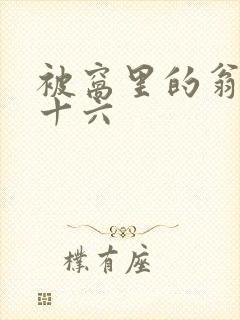 被窝里的翁
十六
樸有座